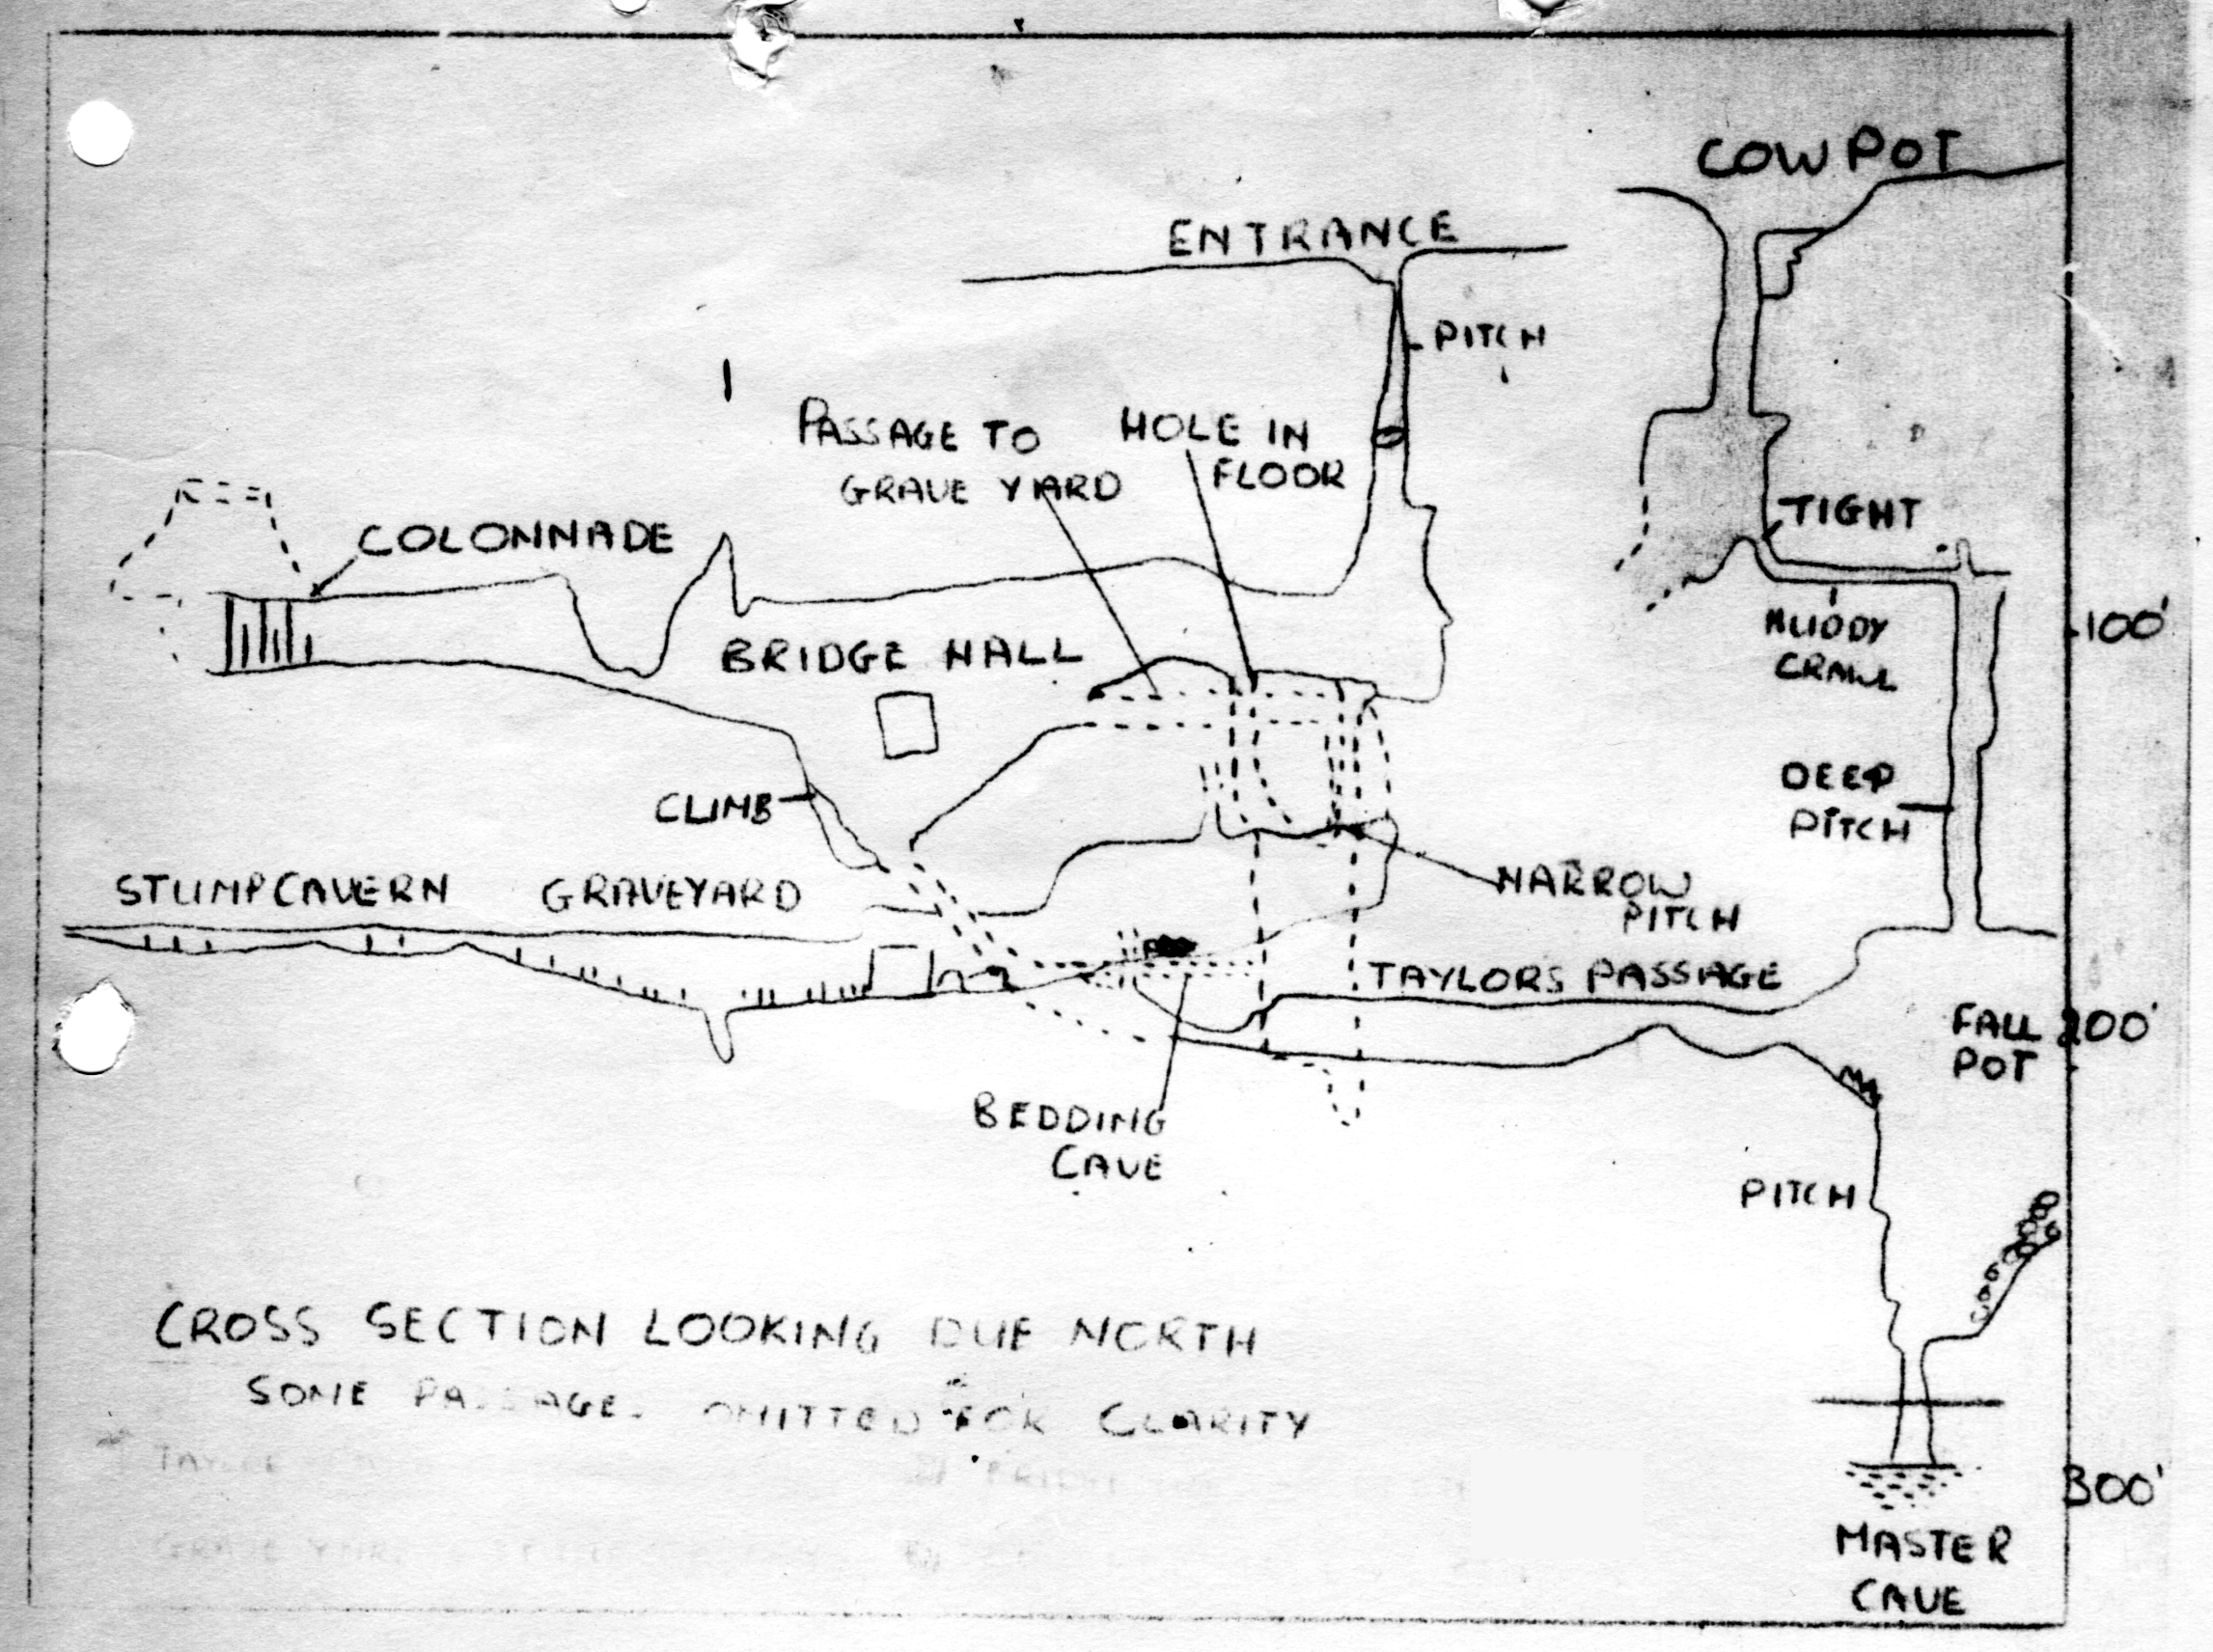 COW POT
ENTRANCE
PITCH
PASSAGE TO
GRAVE YARD
HOLE IN
FLOOR
COLONNADE
TIGHT
100'
BRIDGE HALL
MUDDY
CRAWL
CLIMB
DEEP
PITCH
STUMP CAVERN
GRAVEYARD
NARROW
PITCH
TAYLORS PASSAGE
FALL
POT
200'
BEDDING
CAVE
PITCH
CROSS SECTION LOOKING DUE NORTH
SOME PASSAGES OMITTED FOR CLARITY
300'
MASTER
CAVE